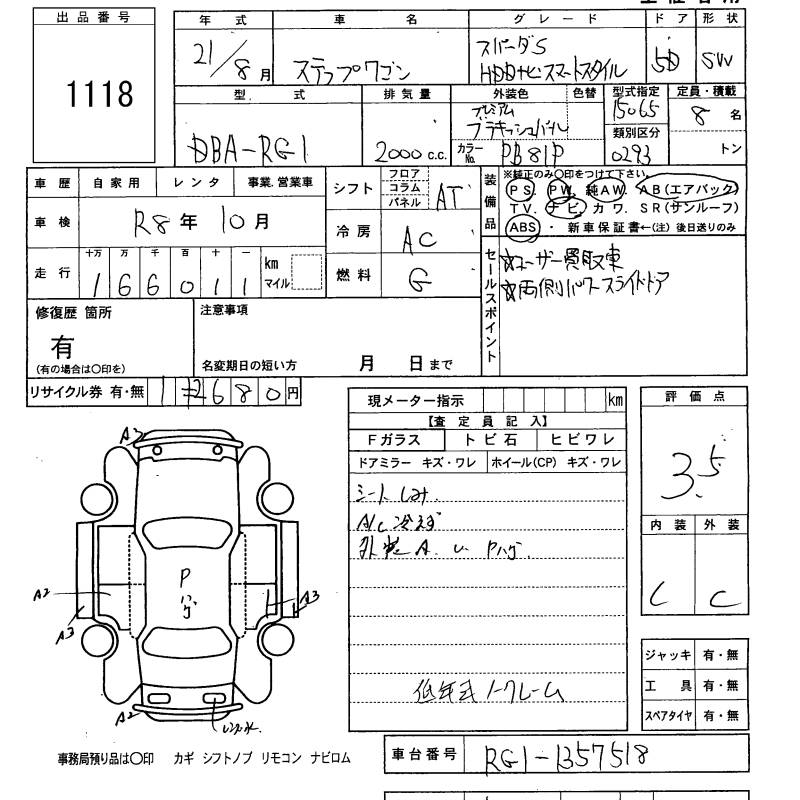 出品番号
1118
年式 車名 グレード ドア 形状
21/8月 ステップワゴン スパーダS HDDナビスマートスタイル 5D SW
型式 排気量 外装色 色替 型式指定 定員・積載
DBA-RG1 2000c.c. プレミアム 15065 8名
カラーNo. PB81P 類別区分 0293 トン
車歴 自家用 レンタ 事業.営業車
車検 R8年10月
走行 十万 万 千 百 十 一 km マイル
166011
シフト フロア コラム パネル AT
冷房 AC
燃料 G
装備品 ※純正のみ〇印をつけて下さい。
PS. PW. 純AW. AB(エアバック)
TV. ナビ. カワ. SR(サンルーフ)
ABS ・ 新車保証書←(注) 後日送りのみ
セールスポイント
☆ユーザー買取車
☆両側パワースライドドア
修復歴 箇所
有
(有の場合は〇印を)
注意事項
名変期日の短い方 月 日まで
リサイクル券 有・無 12680円
現メーター指示 km
【査定員記入】
Fガラス トビ石 ヒビワレ
ドアミラー キズ・ワレ ホイール(CP) キズ・ワレ
シートしみ.
A/C冷えず
外装 A. U. Pハゲ.
低年式ノークレーム
評価点
3.5
内装 外装
C C
ジャッキ 有・無
工具 有・無
スペアタイヤ 有・無
A3
P
ハゲ
A2
A3
A3
A2
事務局預り品は〇印 カギ シフトノブ リモコン ナビロム
車台番号 RG1-1357518